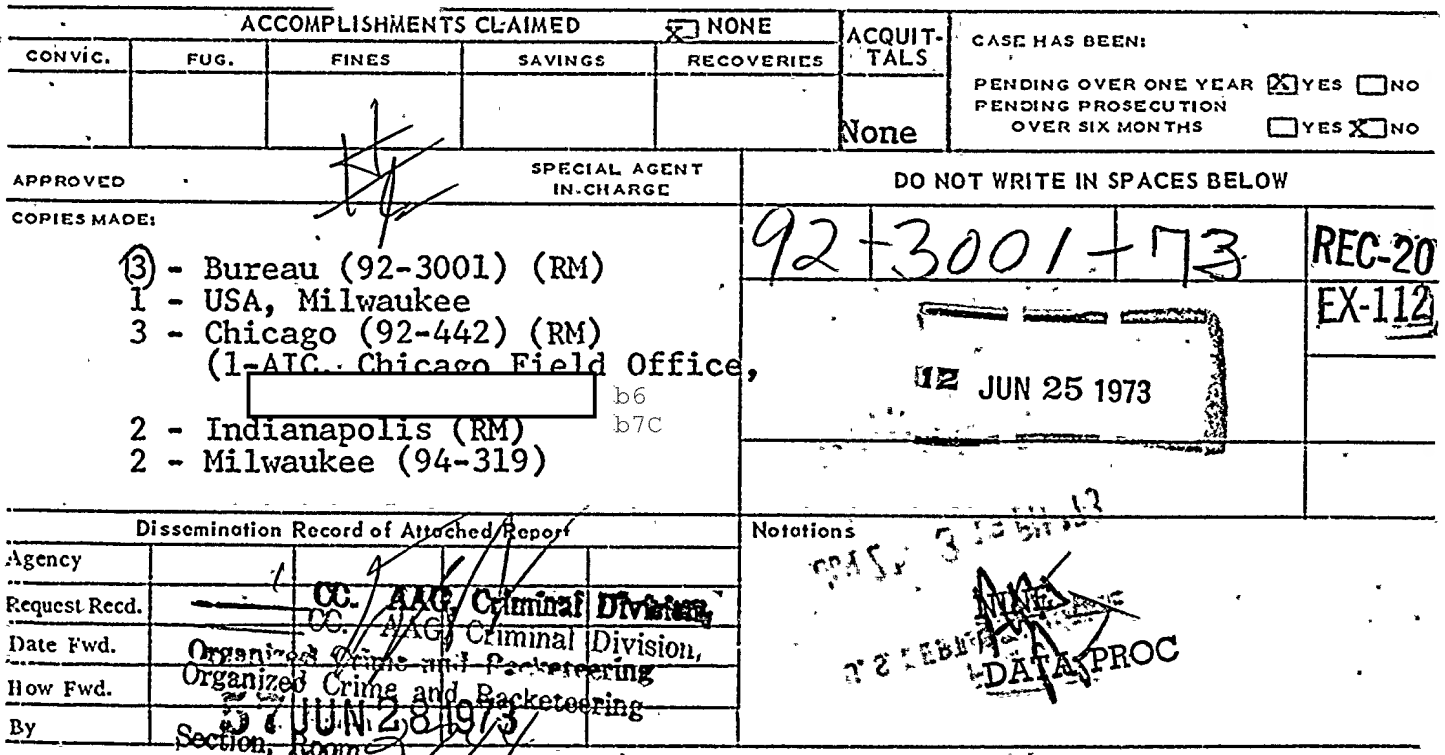 ACCOMPLISHMENTS CLAIMED NONE
CONVIC. FUG. FINES SAVINGS RECOVERIES
ACQUIT-
TALS
None
CASE HAS BEEN:
PENDING OVER ONE YEAR YES NO
PENDING PROSECUTION
OVER SIX MONTHS YES NO
APPROVED
SPECIAL AGENT
IN-CHARGE
DO NOT WRITE IN SPACES BELOW
COPIES MADE:
3 - Bureau (92-3001) (RM)
1 - USA, Milwaukee
3 - Chicago (92-442) (RM)
(1-AIC, Chicago Field Office,
b6
b7C
2 - Indianapolis (RM)
2 - Milwaukee (94-319)
92-3001-73
REC-20
EX-112
12 JUN 25 1973
Dissemination Record of Attached Report
Agency
Request Recd.
Date Fwd.
How Fwd.
By
CC. AAG, Criminal Division,
CC. AAG, Criminal Division,
Organized Crime and Racketeering
Organized Crime and Racketeering
JUN 28 1973
Section, Room
Notations
NINE
DATA PROC